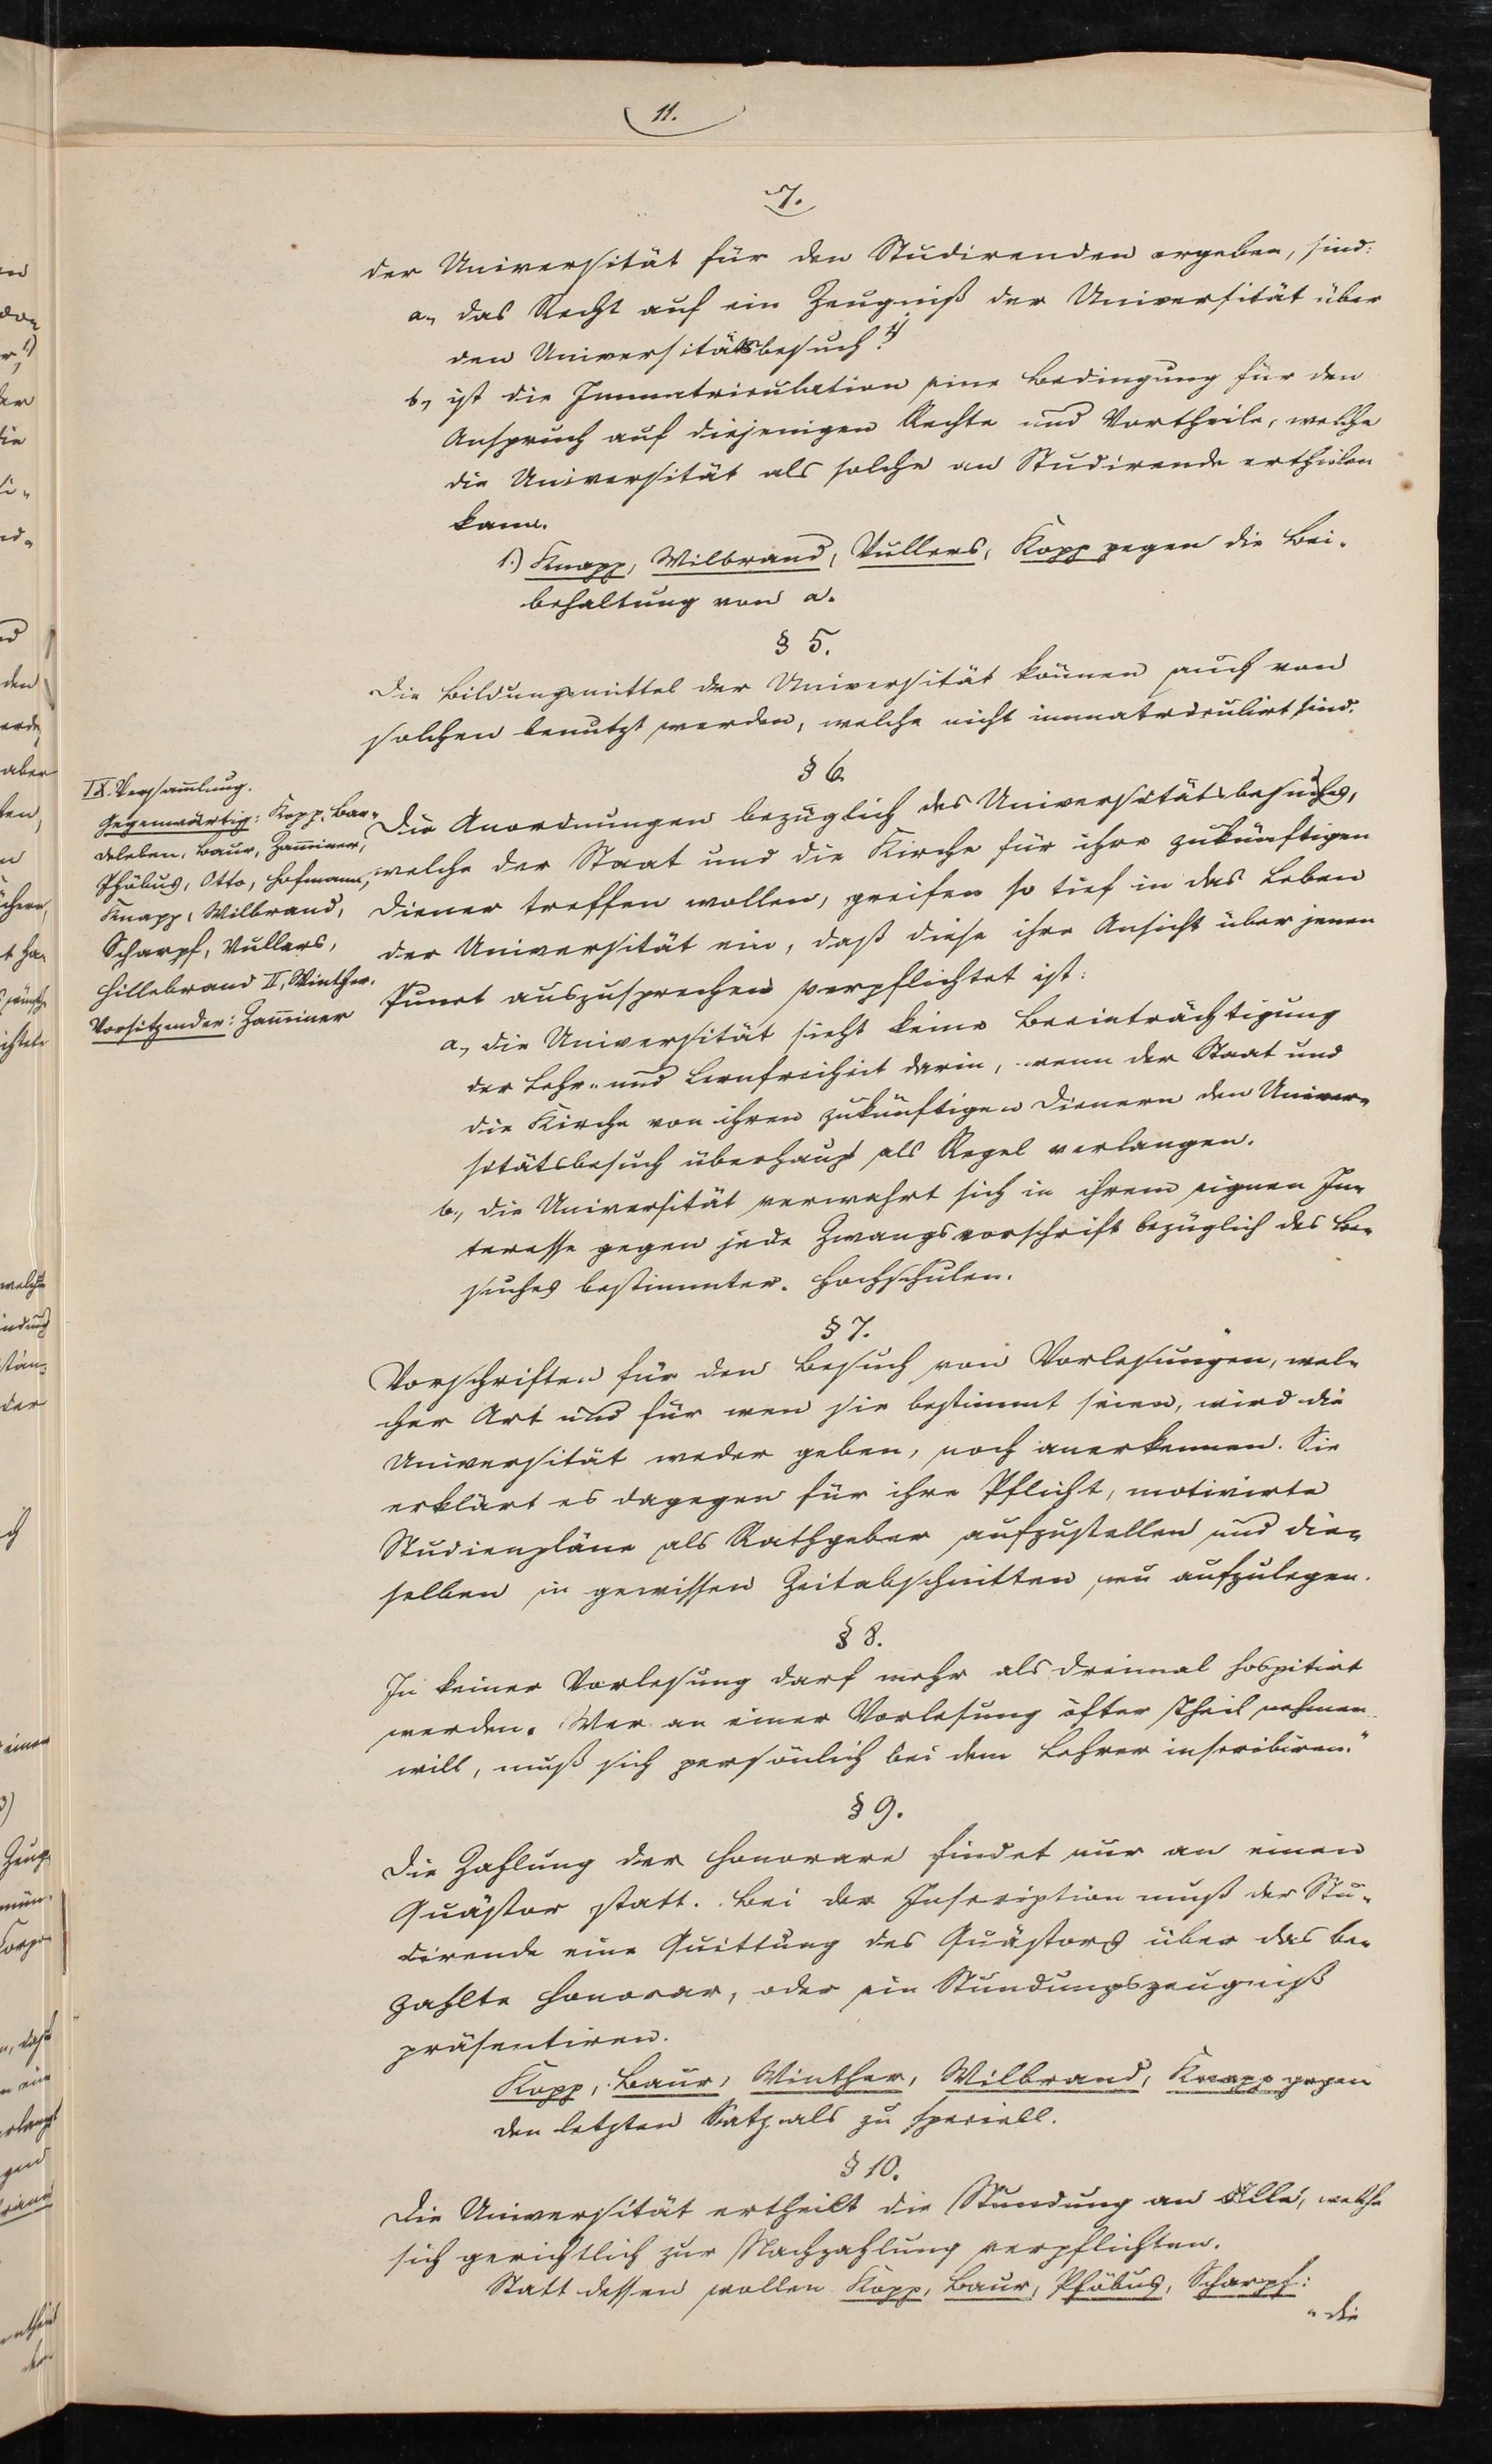 11.
7.
der Universität für den Studirenden ergeben, sind:
a., das Recht auf ein Zeugniß der Universität über
den Universitätsbesuch.¹⁾
b., ist die Immatriculation eine Bedingung für den
Anspruch auf diejenigen Rechte und Vortheile, welche
die Universität als solche an Studirende ertheilen
kann.
1.) Knapp, Wilbrand, Vullers, Kopp gegen die Bei-
behaltung von a.
§ 5.
Die Bildungsmittel der Universität können auch von
solchen benutzt werden, welche nicht immatriculirt sind.
§ 6.
IX. Versam̅lung.
Gegenwärtig: Kopp, Bar-
deleben, Baur, Zam̅iner,
Phöbus, Otto, Hofmann,
Knapp, Wilbrand,
Scharpf, Vullers,
Hillebrand II, Winther.
Vorsitzender: Zam̅iner
Die Anordnungen bezüglich des Universitätsbesuches,
welche der Staat und die Kirche für ihre zukünftigen
Diener treffen wollen, greifen so tief in das Leben
der Universität ein, daß diese ihre Ansicht über jenen
Punct auszusprechen verpflichtet ist:
a., die Universität sieht keine Beeinträchtigung
der Lehr- und Lernfreiheit darin, wenn der Staat und
die Kirche von ihren zukünftigen Dienern den Univer-
sitätsbesuch überhaupt als Regel verlangen.
b., die Universität verwahrt sich in ihrem eignen In-
teresse gegen jede Zwangsvorschrift bezüglich des Be-
suches bestimmter Hochschulen.
§ 7.
Vorschriften für den Besuch von Vorlesungen, wel-
cher Art und für wen sie bestimmt seien, wird die
Universität weder geben, noch anerkennen. Sie
erklärt es dagegen für ihre Pflicht, motivirte
Studienpläne als Rathgeber aufzustellen und die-
selben in gewissen Zeitabschnitten neu aufzulegen.
§ 8.
In keiner Vorlesung darf mehr als dreimal hospitirt
werden. Wer an einer Vorlesung öfter Theil nehmen
will, muß sich persönlich bei dem Lehrer inscribiren."
§ 9.
Die Zahlung der Honorare findet nur an einen
Quästor statt. Bei der Inscription muß der Stu-
dirende eine Quittung des Quästors über das be-
zahlte Honorar, oder ein Stundungszeugniß
präsentiren.
Kopp, Baur, Winther, Wilbrand, Knapp gegen
den letzten Satz als zu speciell.
§ 10.
Die Universität ertheilt die Stundung an Alle, welche
sich gerichtlich zur Nachzahlung verpflichten.
Statt dessen wollen Kopp, Baur, Phöbus, Scharpf:
"die